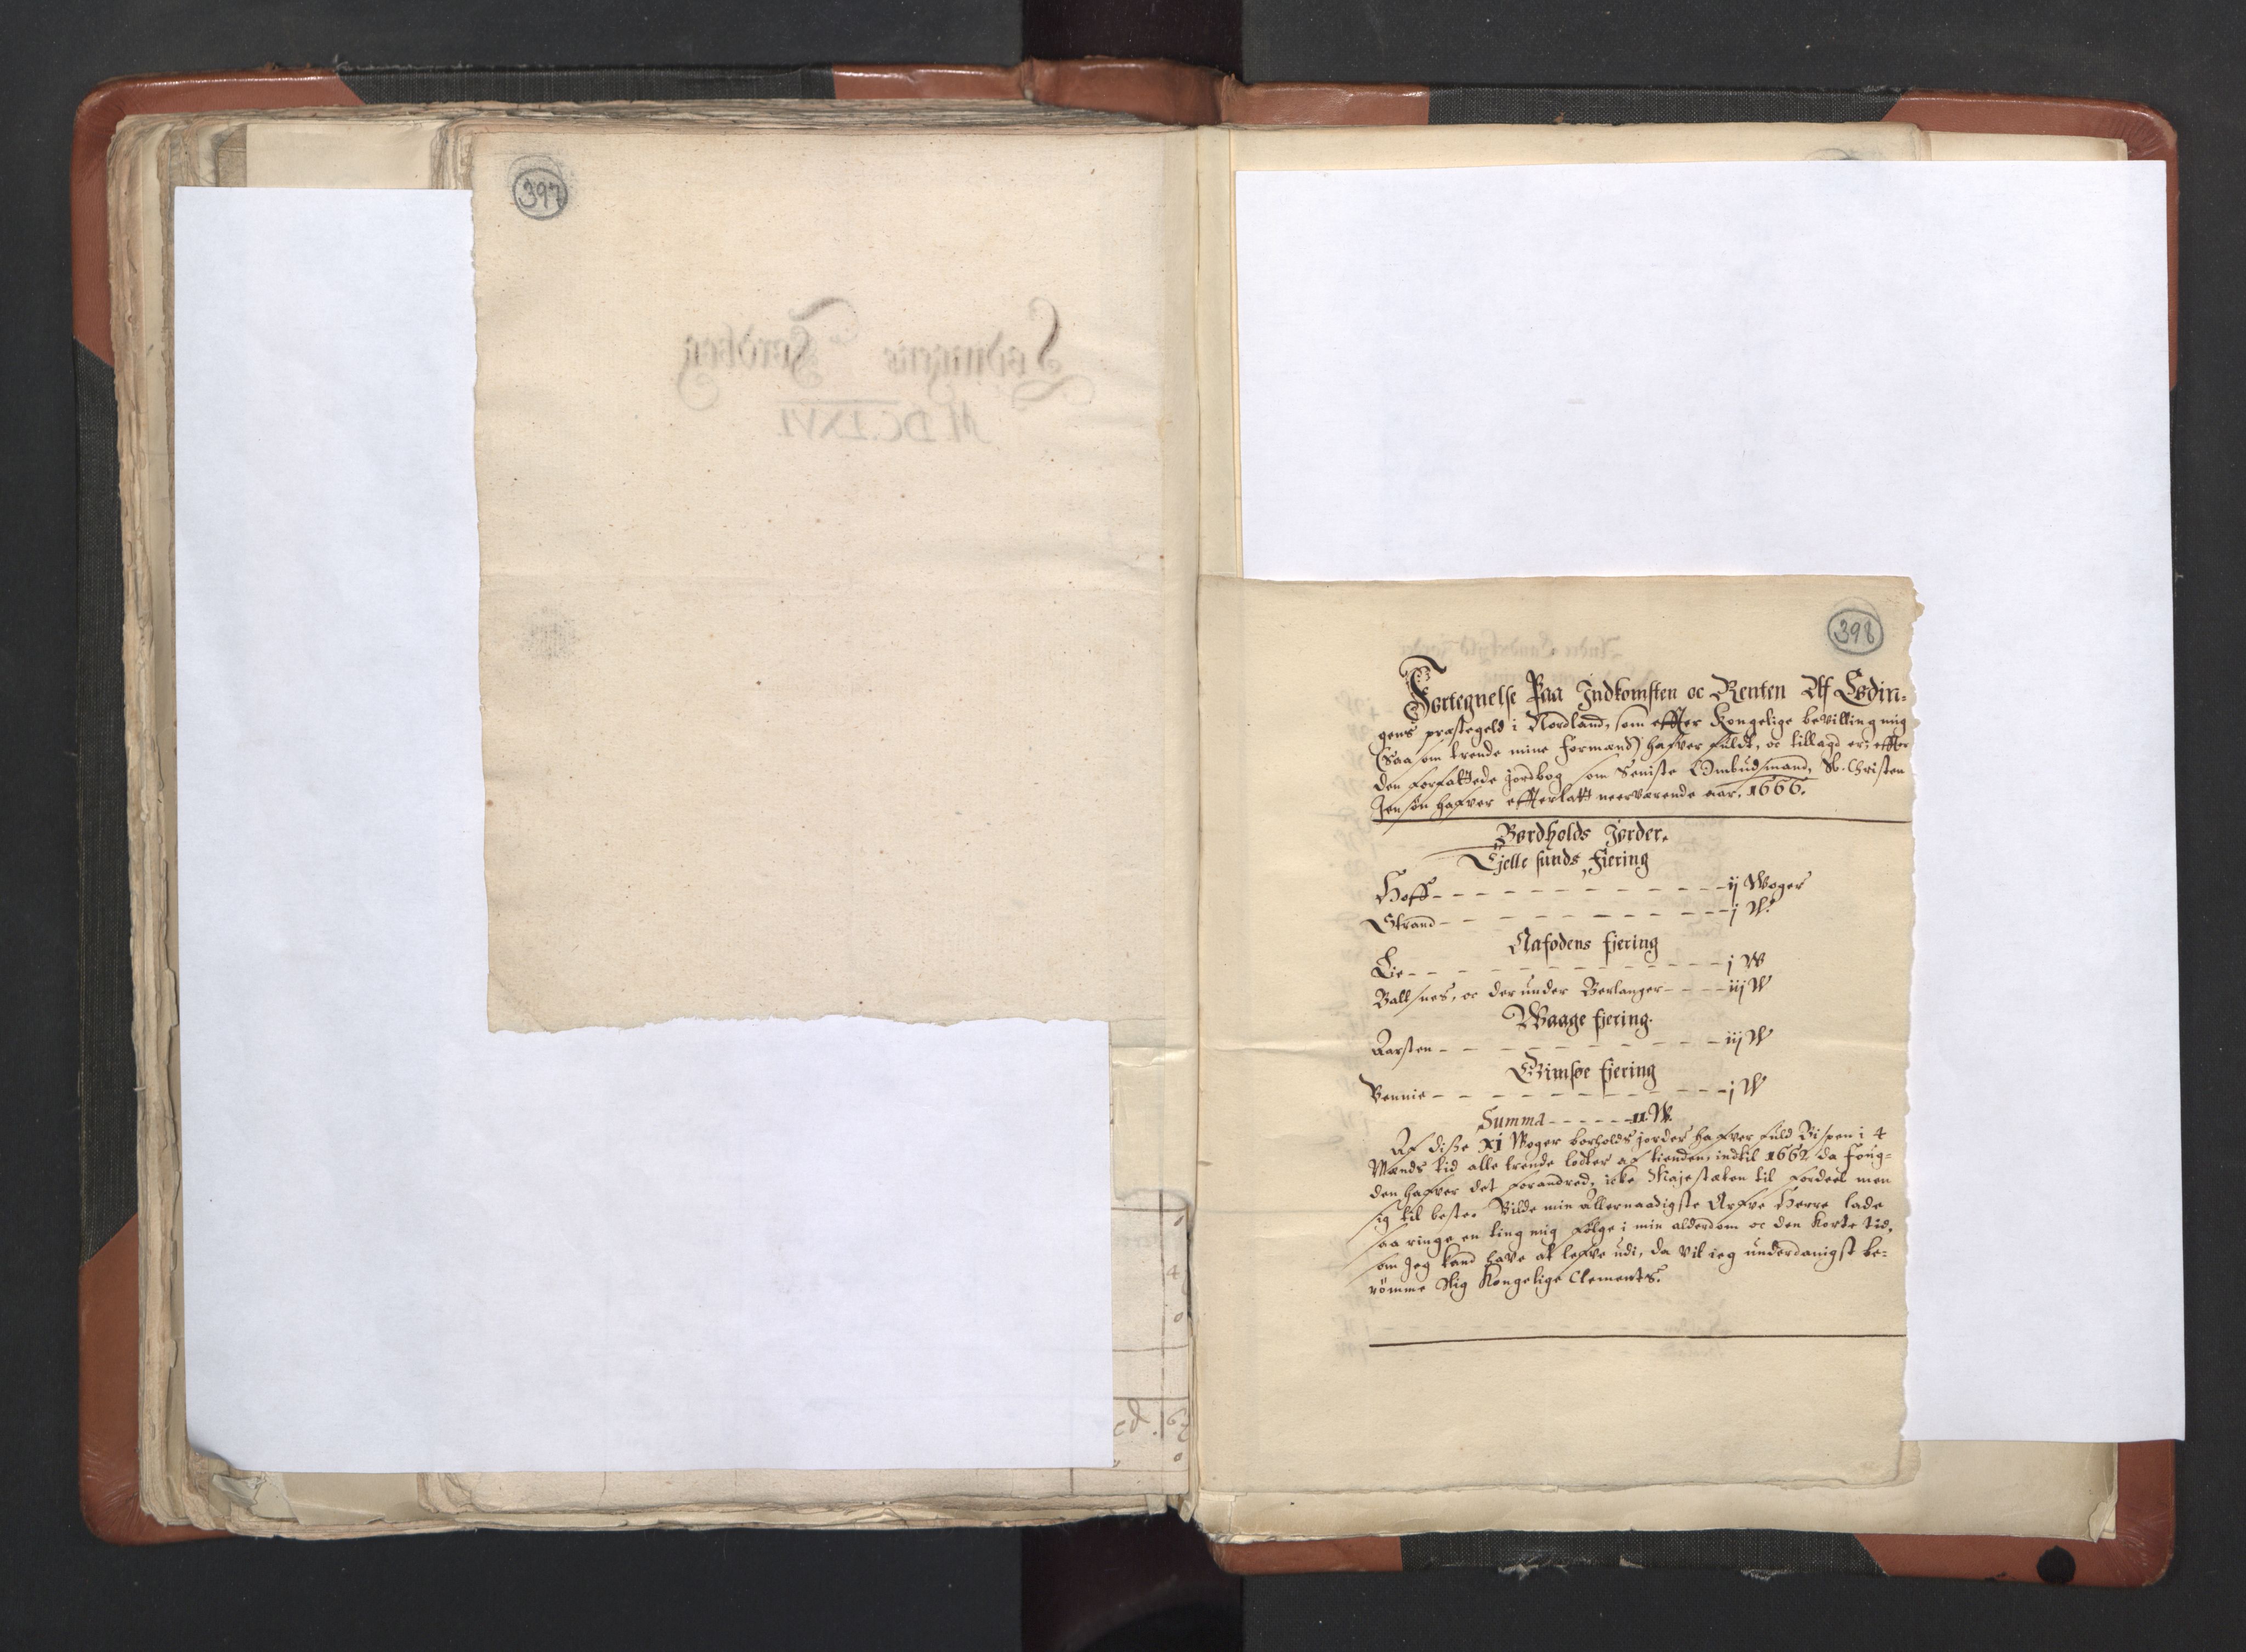 397
398
Fortegnelse Paa Indkomsten oc Renten Af Lødin-
gens præstegeld i Nordland, som effter Kongelige bevilling mig
(Saa som trende mine Formænd) hafver fuldt, oc tillagd er; effter
den forfattede jordbog som Seniste Ombudsmand, Sl. Christen
Jensøn hafver efterlatt neerværende aar. 1666.
Bordholds Jorder.
Tjelle sunds fiering
Hoff - - - ij Woger
Strand - - - j W.
Aafodens fiering
Lie - - - j W
Ballsnes, oc der under Berlanger - - - iij W
Waage fiering.
Aarsten - - - iij W
Gimsøe fiering
Vennie - - - j W
Summa - - - 11. W.
Af disse xj Woger borholds jorder hafver fuld Bispen i 4
Mands tid alle trende lodter af tienden, indtil 1662 da foug-
den hafver det forandred, icke Majestæten til fordeel men
sig til beste. Vilde min Allernaadigste Arfve Herre lade
saa ringe en ting mig følge i min alderdom oc den korte tid,
som Jeg kand have at lefve udi, da vil ieg underdanigst be-
römme Slig Kongelige Clements.